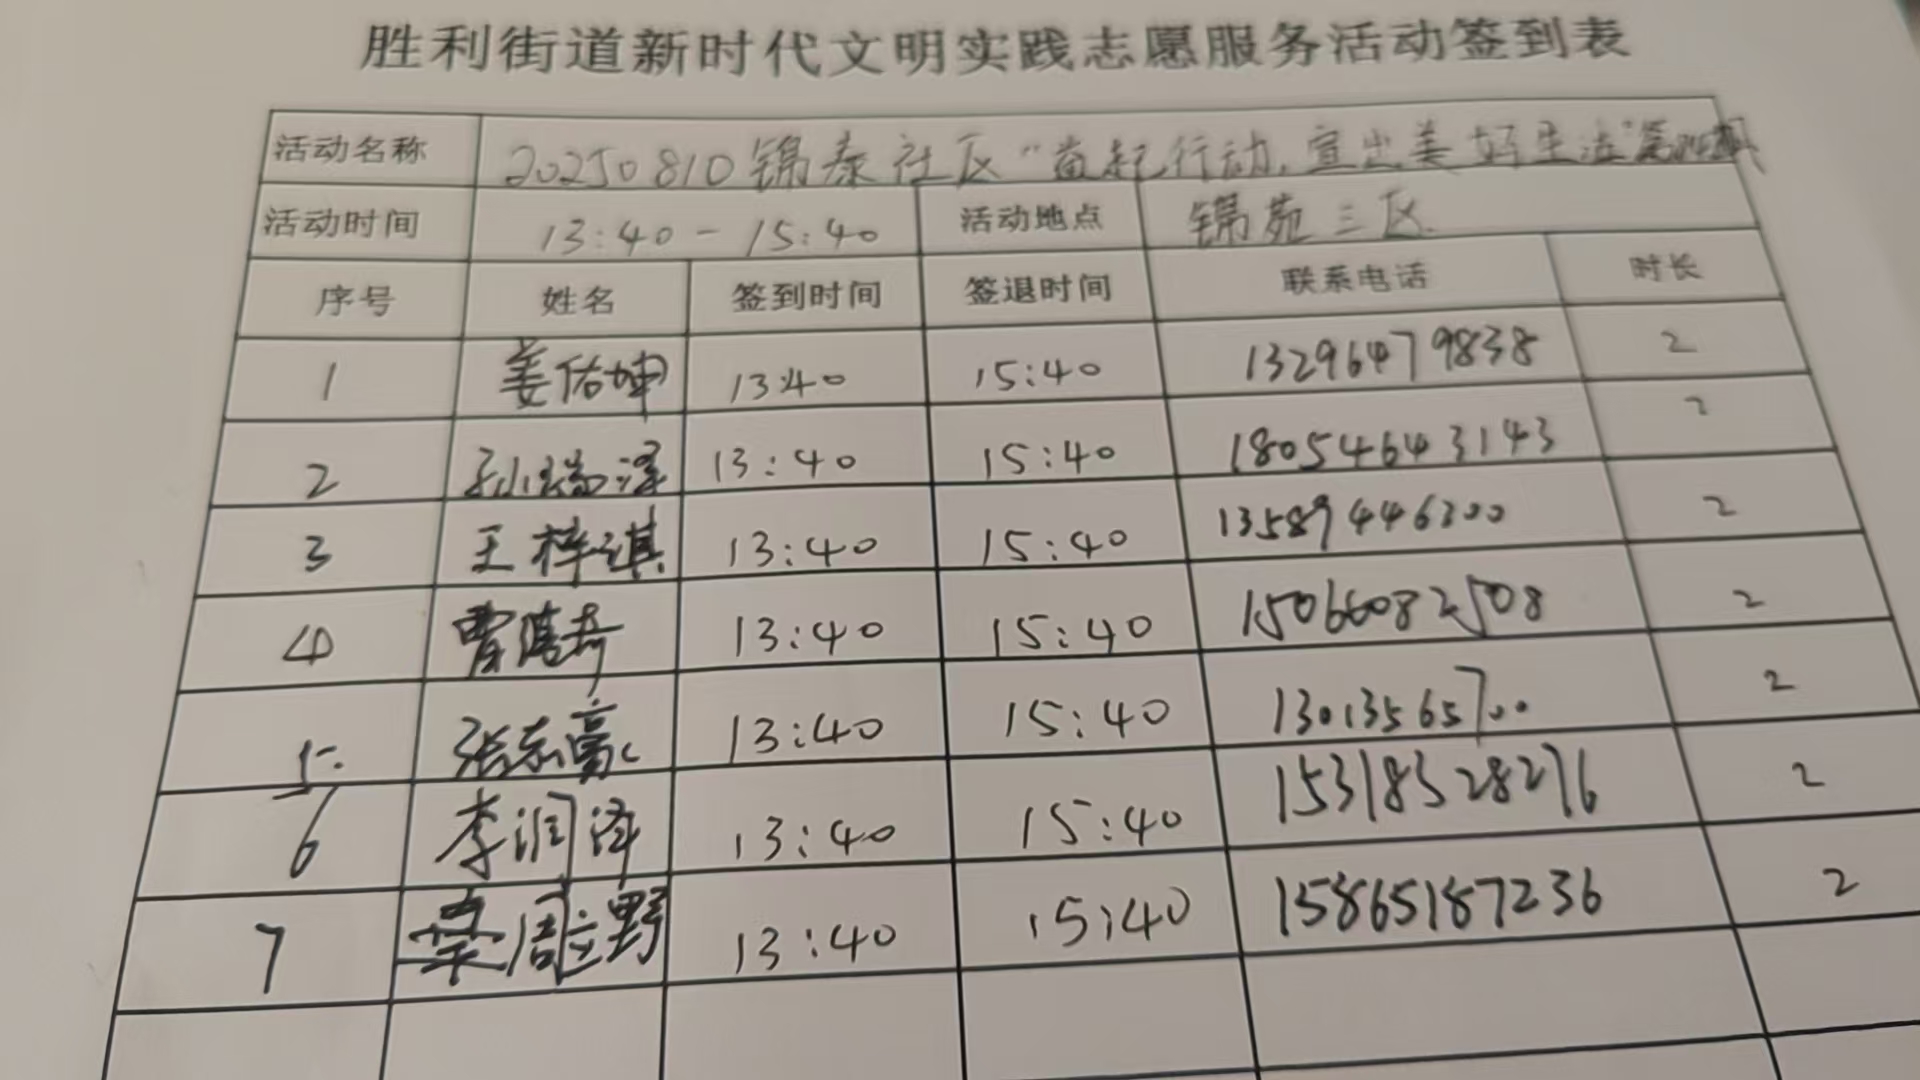 胜利街道新时代文明实践志愿服务活动签到表
活动名称 20250810锦泰社区“益起行动,宣出美好生活”
活动时间 13:40-15:40 活动地点 锦苑三区
序号 姓名 签到时间 签退时间 联系电话 时长
1 姜佑坤 13:40 15:40 13296479838 2
2 孙瑞泽 13:40 15:40 18054643143 2
3 王梓淇 13:40 15:40 13589446300 2
4 曹 13:40 15:40 15066082508 2
5 张东豪 13:40 15:40 13013565700 2
6 李润泽 13:40 15:40 15318328276 2
7 周立野 13:40 15:40 15865187236 2